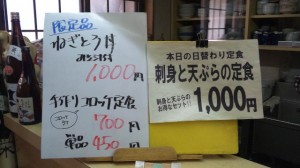 限定品
ねぎとろ丼
みそ汁付
1,000円
手作りコロッケ定食
コロッケ
700円
単品
450円
本日の日替わり定食
刺身と天ぷらの定食
刺身と天ぷらの
お得なセット!!
1,000円